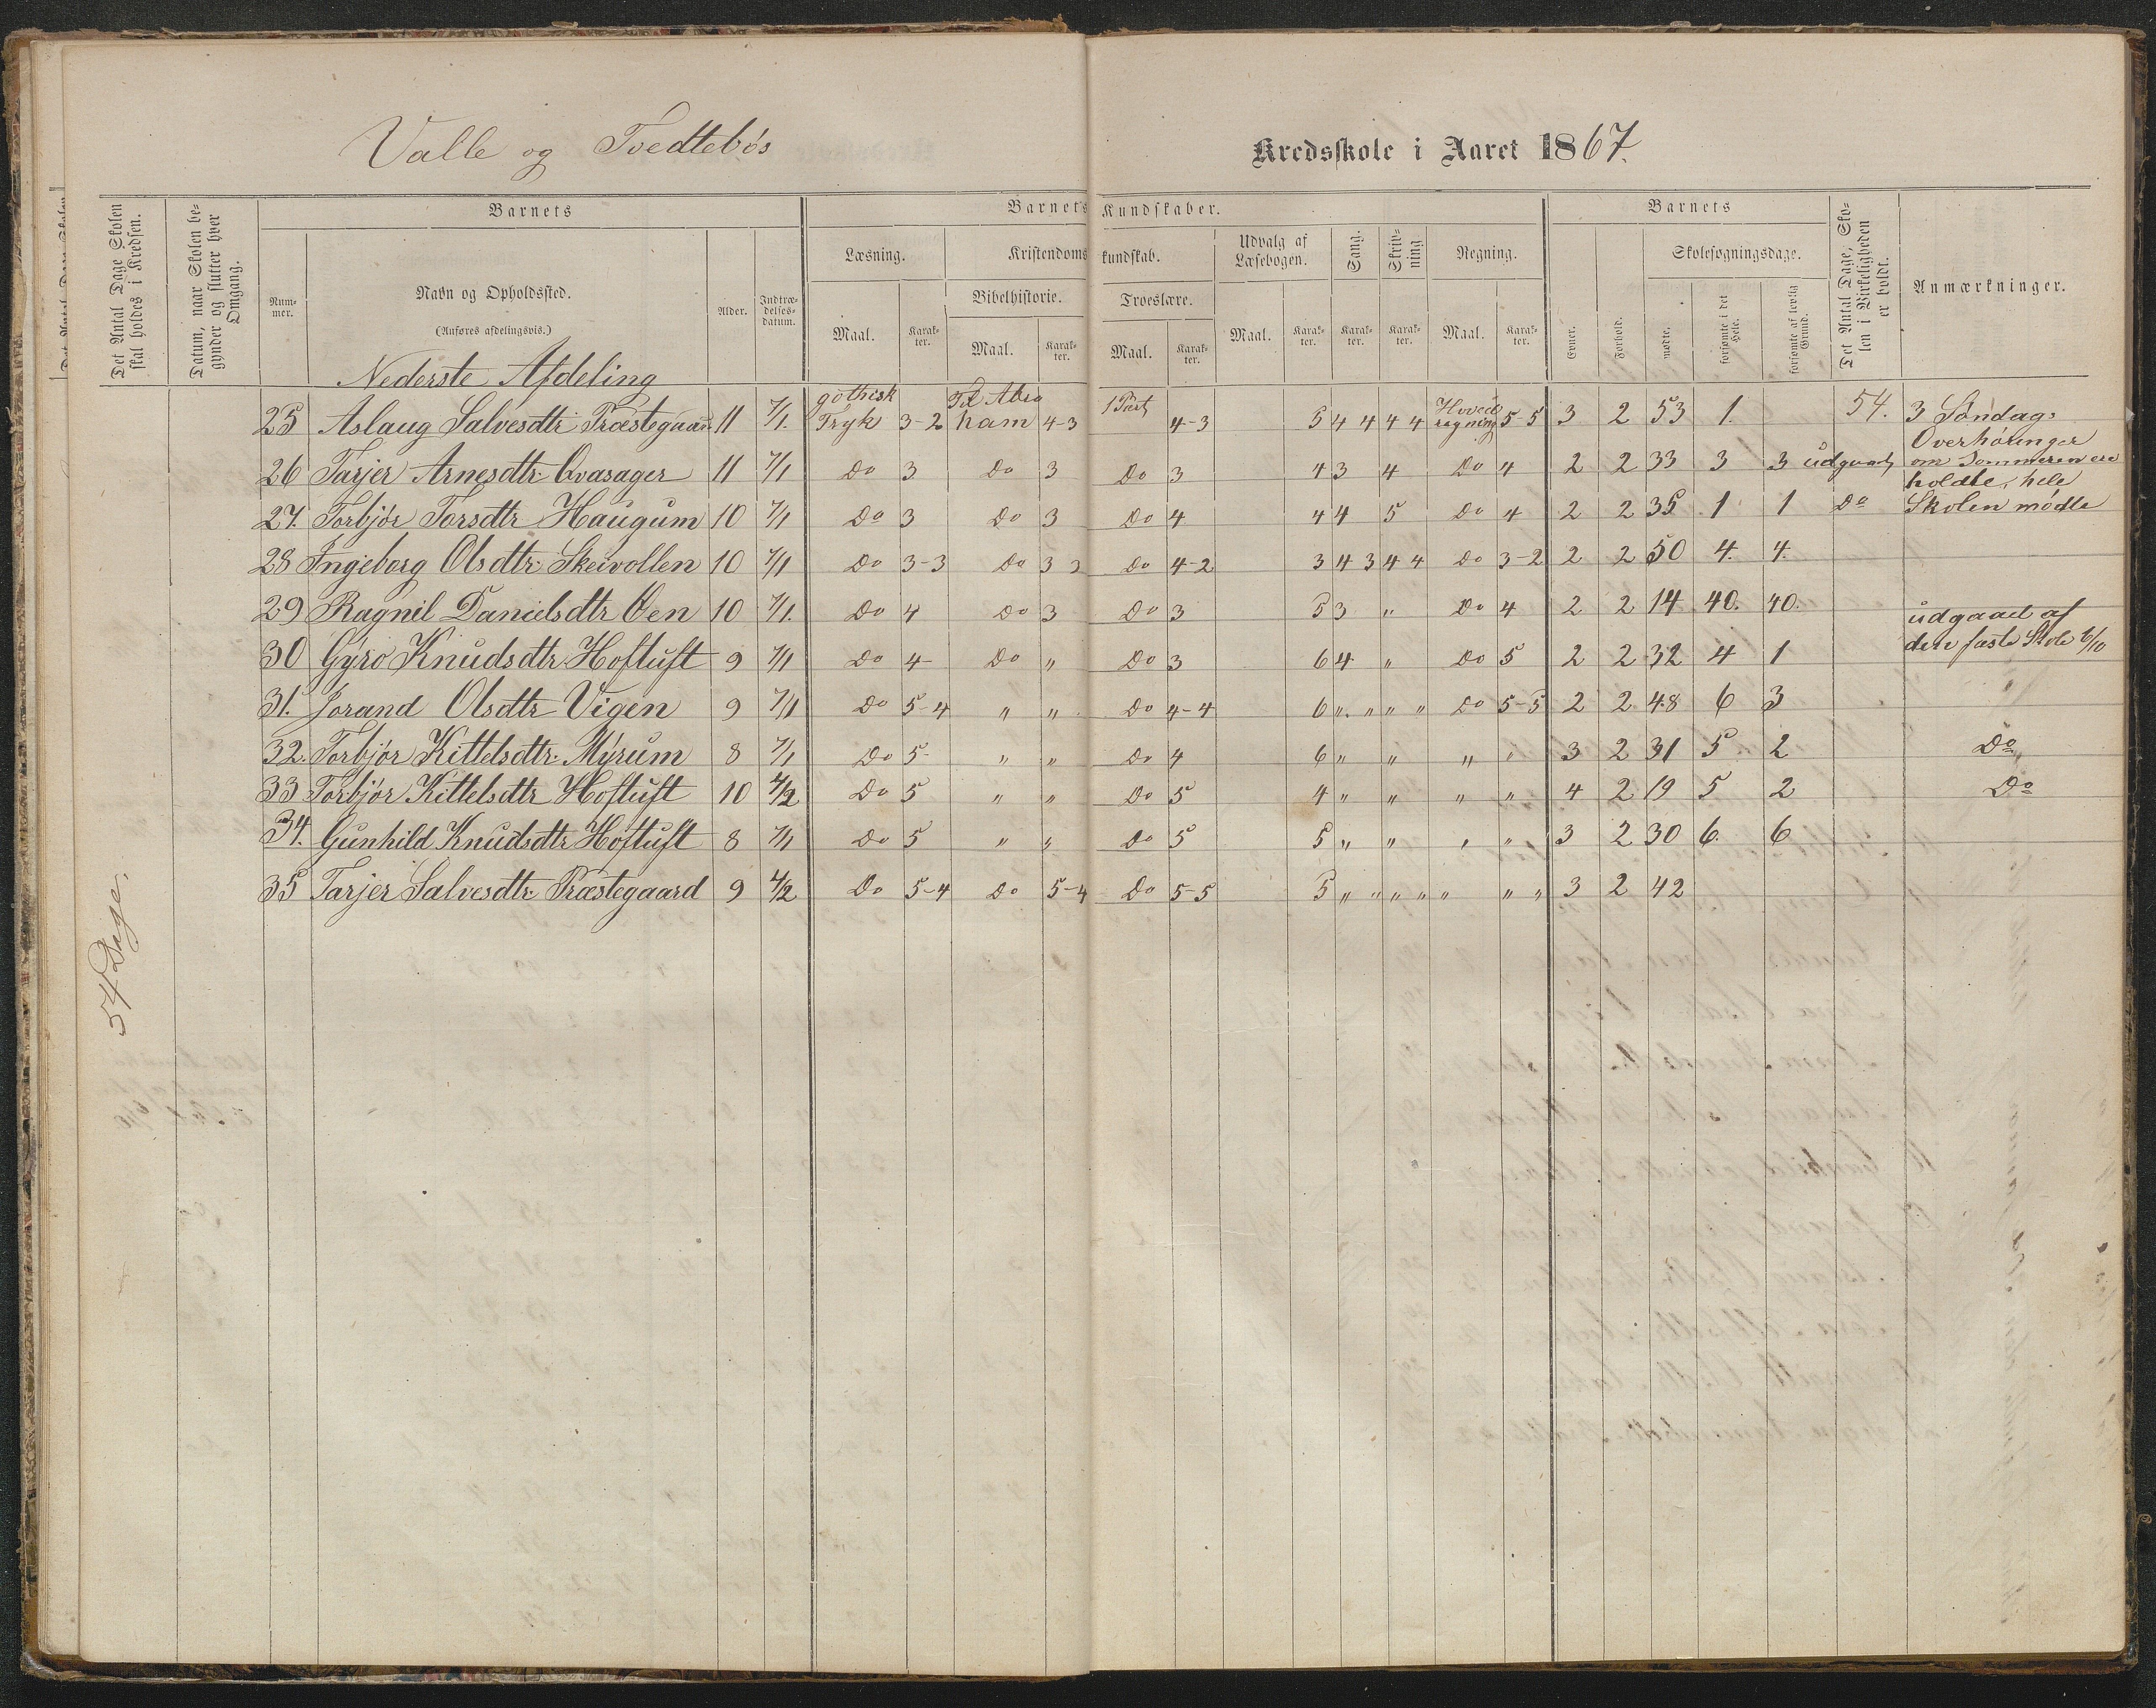 Valle og Tvedtebøs Kredsskole i Aaret 1867.
Det Antal Dage Skolen skal holdes i Kredsen.
Datum, naar Skolen begynder og slutter hver Omgang.
Barnets
Barnets Kundskaber.
Barnets
Det Antal Dage, Skolen i Virkeligheden er holdt.
Anmærkninger.
Nummer.
Navn og Opholdssted.
(Anføres afdelingsvis.)
Alder.
Indtrædelsesdatum.
Læsning.
Kristendomskundskab.
Udvalg af Læsebogen.
Sang.
Skrivning
Regning.
Evner.
Forhold.
Skolesøgningsdage.
Bibelhistorie.
Troeslære.
Maal. Karakter. Maal. Karakter. Maal. Karakter. Maal. Karakter. Karakter. Karakter. Maal. Karakter.
mødte.
forsømte i det Hele.
forsømte af lovlig Grund.
Nederste Afdeling
25 Aslaug Salvesdtr Præstegaard 11 7/1. gothisk Tryk 3-2 Til Abraham 4-3 1 Part 4-3 5 4 4 4 4 Hovedregning 5-5 3 2 53 1. 54. 3 Søndags
Overhøringer
26 Tarjer Arnesdtr Qvasager 11 7/1 Do 3 Do 3 Do 3 4 3 4 Do 4 2 2 33 3 3 udgaaet om Sommeren ere
holdte, hele
27. Torbjør Torsdtr Haugum 10 7/1 Do 3 Do 3 Do 4 4 4 5 Do 4 2 2 35 1 1 Do Skolen mødte
28 Ingeborg Olsdtr Skeivollen 10 7/1 Do 3-3 Do 3 2 Do 4-2 3 4 3 4 4 Do 3-2 2 2 50 4. 4.
29 Ragnil Danielsdtr Øen 10 7/1. Do 4 Do 3 Do 3 5 3 " Do 4 2 2 14 40. 40. udgaaet af
30 Gyro Knudsdtr Hoftuft 9 7/1 Do 4- Do " Do 3 6 4 " Do 5 2 2 32 4 1 den faste Skole 6/10
31. Jorand Olsdtr Vigen 9 7/1 Do 5-4 " " Do 4-4 6 " " " " Do 5-5 2 2 48 6 3
32. Torbjør Kittelsdtr Myrum 8 7/1 Do 5- " " Do 4 6 " " " " 3 2 31 5 2 Do
33 Torbjør Kittelsdtr Hoftuft 10 4/2 Do 5 " " Do 5 4 " " " " 4 2 19 5 2 Do
34. Gunhild Knudsdtr Hoftuft 8 7/1 Do 5 " " Do 5 5 " " " " 3 2 30 6. 6
35 Tarjer Salvesdtr Præstegaard 9 4/2 Do 5-4 Do 5-4 Do 5-5 5 " " " " " " " 3 2 42
54 Dage.